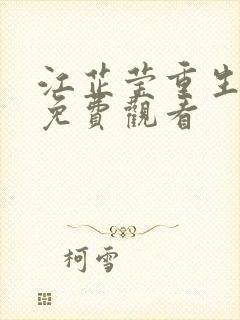 江芷莹重生
免費觀看
柯雪